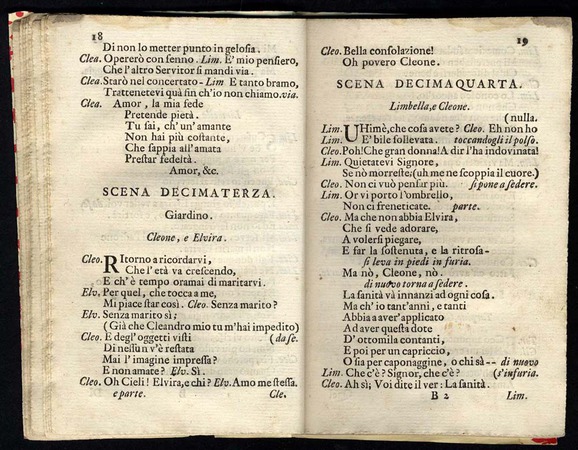 18
Di non lo metter punto in gelosia.
Clea. Opererò con senno. Lim. E' mio pensiero,
Che l'altro Servitor si mandi via.
Clea. Starò nel concertato- Lim E tanto bramo,
Trattenetevi quà fin ch'io non chiamo. via.
Clea. Amor, la mia fede
Pretende pietà.
Tu sai, ch'un'amante
Non hai più costante,
Che sappia all'amata
Prestar fedeltà.
Amor, &c.
SCENA DECIMATERZA.
Giardino.
Cleone, e Elvira.
Cleo. Ritorno a ricordarvi,
Che l'età va crescendo,
E ch'è tempo oramai di maritarvi.
Elv. Per quel, che tocca a me,
Mi piace star così. Cleo. Senza marito?
Elv. Senza marito sì:
(Già che Cleandro mio tu m'hai impedito)
Cleo. E degl'oggetti visti (da se.
Di nessun v'è restata
Mai l'imagine impressa?
E non amate? Elv. Sì.
Cleo. Oh Cieli! Elvira, e chi? Elv. Amo me stessa.
e parte. Cle.
19
Cleo. Bella consolazione!
Oh povero Cleone.
SCENA DECIMAQUARTA.
Limbella, e Cleone.
(nulla.
Lim. UHimè, che cosa avete? Cleo. Eh non ho
Lim. E' bile sollevata. toccandogli il polso.
Cleo. Poh! Che gran donna! A dir l'ha indovinata!
Lim. Quietatevi Signore,
Se nò morreste: (uh me ne scoppia il cuore.)
Cleo. Non ci vuò pensar più. si pone a sedere.
Lim. Or vi porto l'ombrello,
Non ci freneticate. parte.
Cleo. Ma che non abbia Elvira,
Che si vede adorare,
A volersi piegare,
E far la sostenuta, e la ritrosa-
si leva in piedi in furia.
Ma nò, Cleone, nò.
di nuovo torna a sedere.
La sanità và innanzi ad ogni cosa.
Ma ch'io tant'anni, e tanti
Abbia a aver'applicato
Ad aver questa dote
D'ottomila contanti,
E poi per un capriccio,
O sia per caponaggine, o chi sà-- di nuovo
Lim. Che c'è? Signor, che c'è? (s'infuria.
Cleo. Ah sì; Voi dite il ver: La sanità.
B 2 Lim.